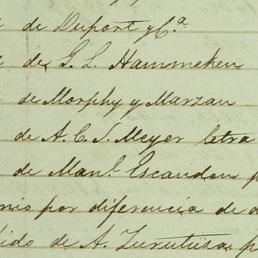 de Duport y C.ª
de G. L. Hammeken
de Morphy y Marzan
de A. C. S. Meyer letra
de Man.l Escandon p
nio por diferencia de
dido de A. Zurutuza p